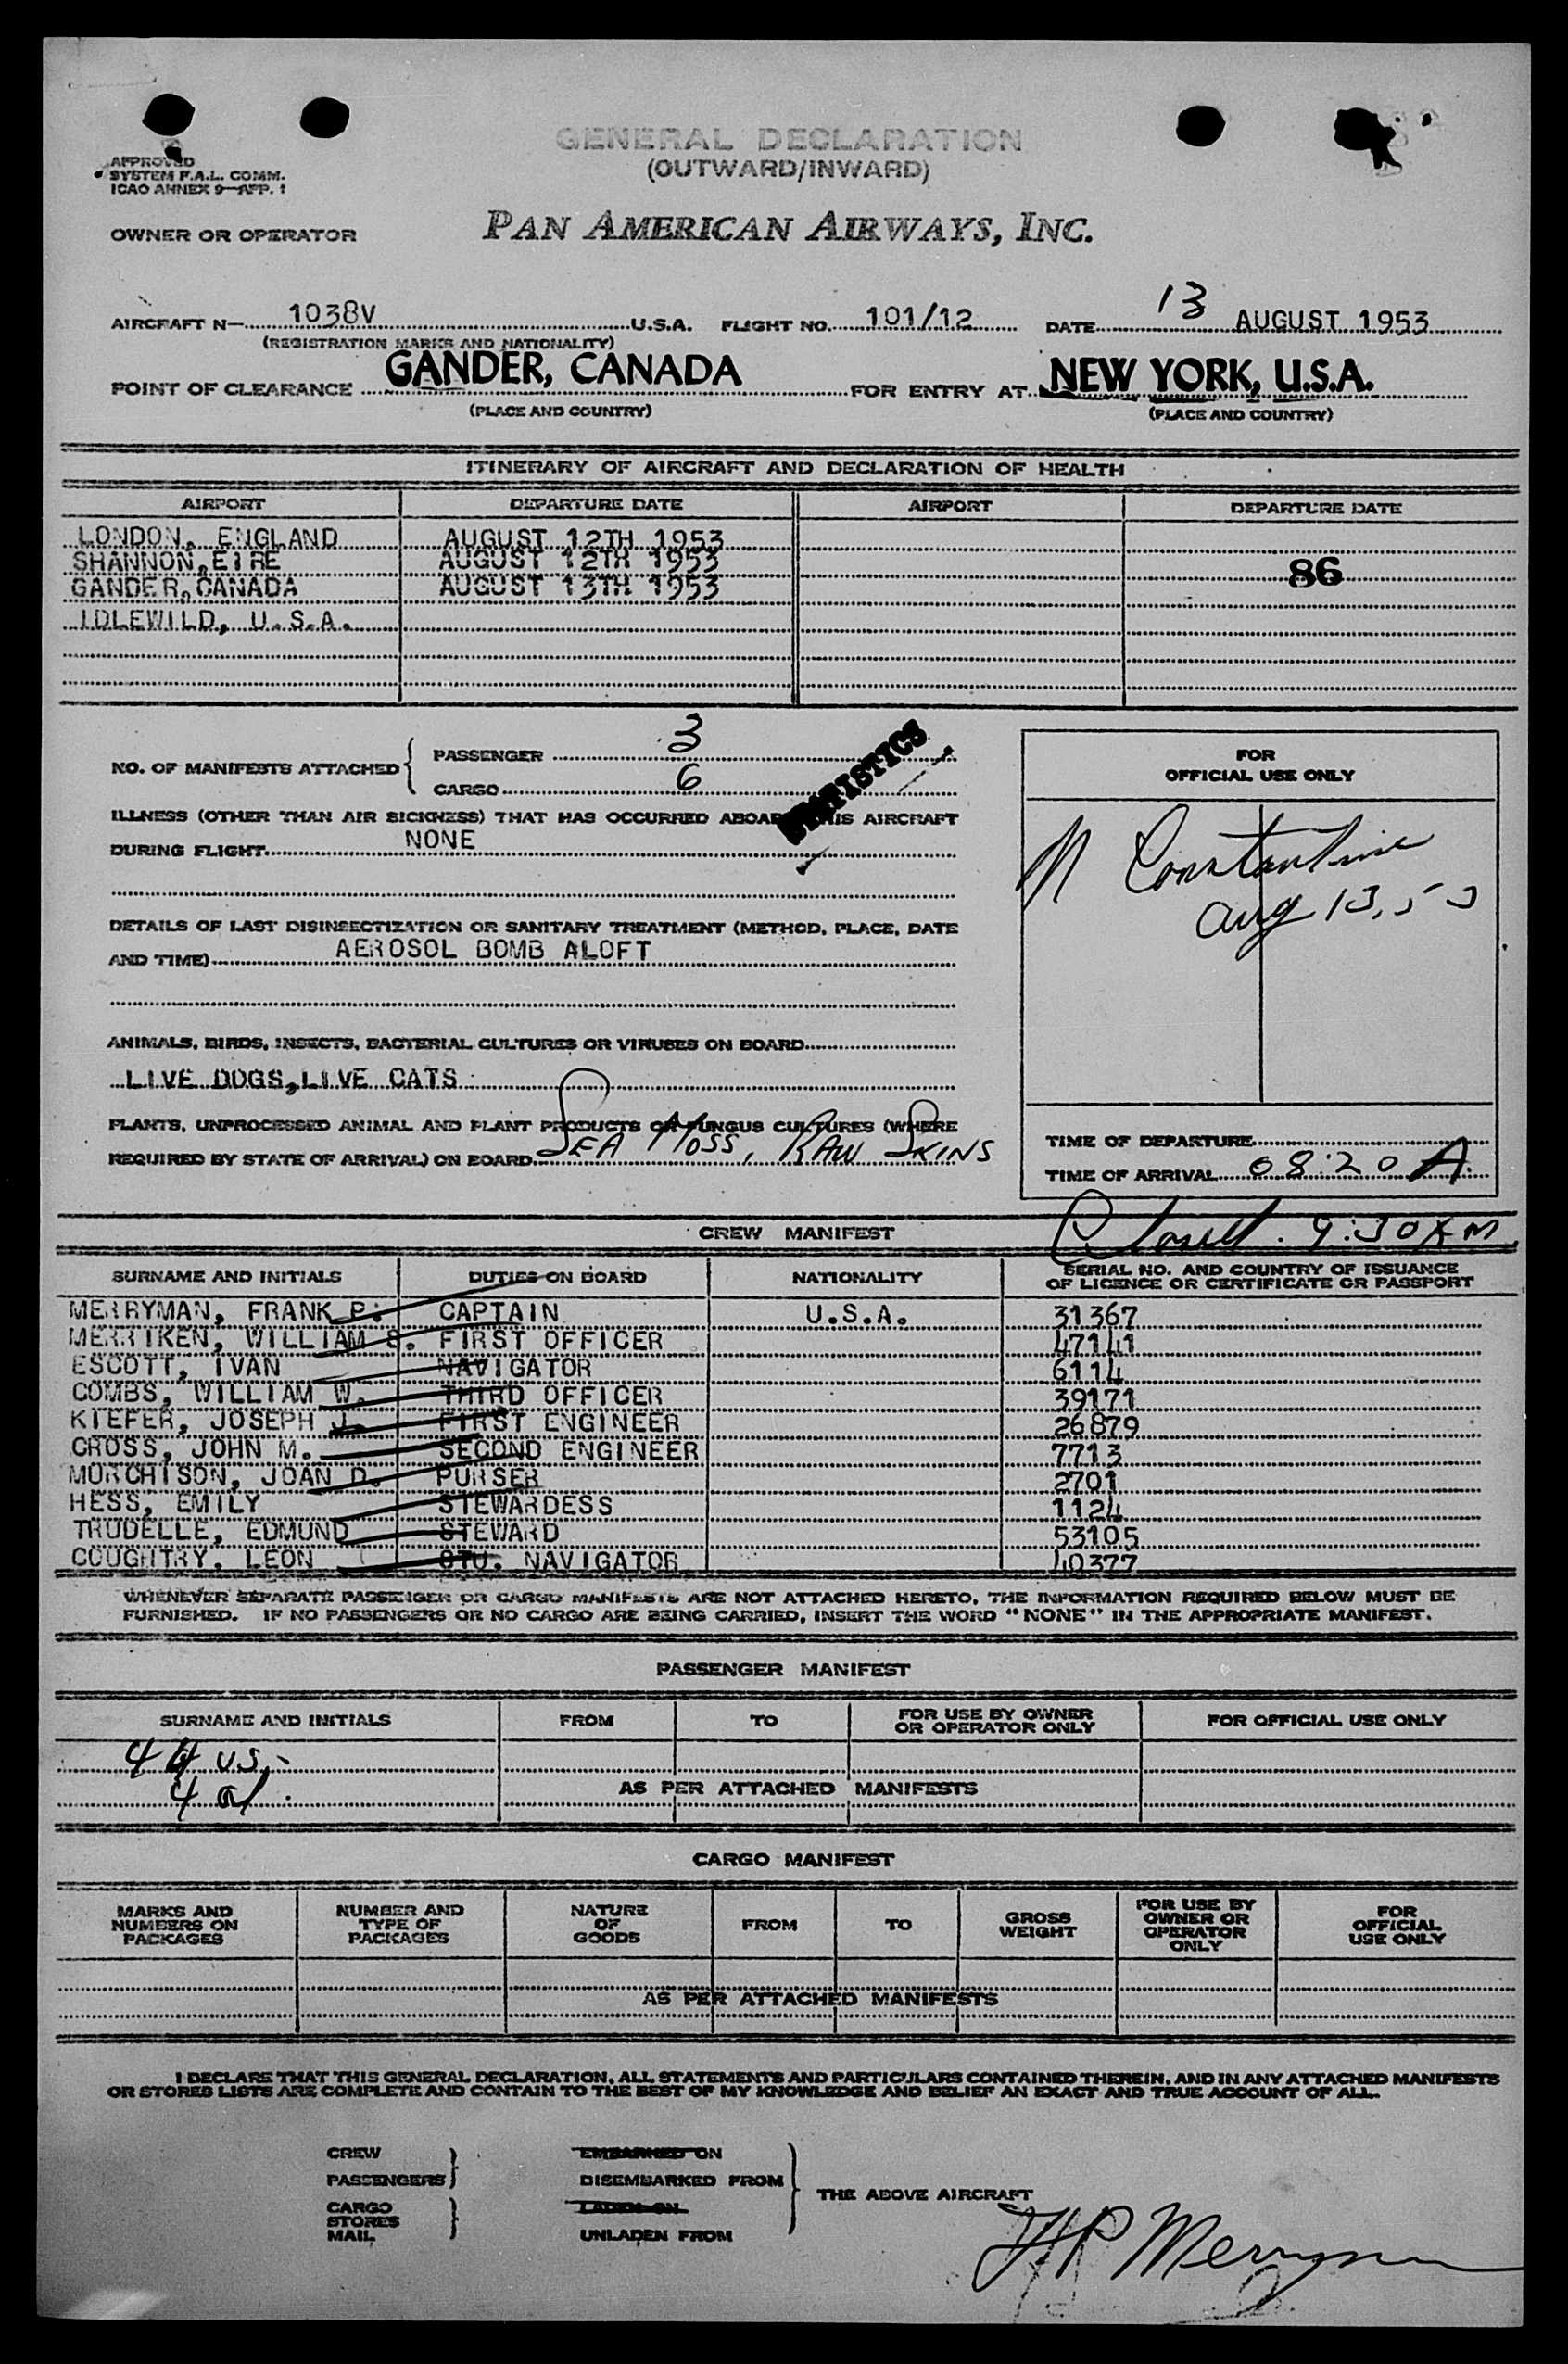 GENERAL DECLARATION
(OUTWARD/INWARD)
APPROVED
SYSTEM F.A.L. COMM.
ICAO ANNEX 9—APP. 1
OWNER OR OPERATOR
PAN AMERICAN AIRWAYS, INC.
AIRCRAFT N— 1038V U.S.A. FLIGHT NO. 101/12 DATE 13 AUGUST 1953
(REGISTRATION MARKS AND NATIONALITY)
POINT OF CLEARANCE GANDER, CANADA FOR ENTRY AT NEW YORK, U.S.A.
(PLACE AND COUNTRY) (PLACE AND COUNTRY)
ITINERARY OF AIRCRAFT AND DECLARATION OF HEALTH
AIRPORT DEPARTURE DATE AIRPORT DEPARTURE DATE
LONDON, ENGLAND AUGUST 12TH 1953
SHANNON, EIRE AUGUST 12TH 1953
86
GANDER, CANADA AUGUST 13TH 1953
IDLEWILD, U.S.A.
NO. OF MANIFESTS ATTACHED PASSENGER 3
CARGO 6
STATISTICS
ILLNESS (OTHER THAN AIR SICKNESS) THAT HAS OCCURRED ABOARD THIS AIRCRAFT
DURING FLIGHT NONE
DETAILS OF LAST DISINSECTIZATION OR SANITARY TREATMENT (METHOD, PLACE, DATE
AND TIME) AEROSOL BOMB ALOFT
ANIMALS, BIRDS, INSECTS, BACTERIAL CULTURES OR VIRUSES ON BOARD
LIVE DOGS, LIVE CATS
PLANTS, UNPROCESSED ANIMAL AND PLANT PRODUCTS OR FUNGUS CULTURES (WHERE
REQUIRED BY STATE OF ARRIVAL) ON BOARD SEA MOSS, RAW SKINS
FOR
OFFICIAL USE ONLY
N Constantine
Aug 13, 53
TIME OF DEPARTURE
TIME OF ARRIVAL 08:20 A
9:30 AM
CREW MANIFEST
SURNAME AND INITIALS DUTIES ON BOARD NATIONALITY SERIAL NO. AND COUNTRY OF ISSUANCE
OF LICENCE OR CERTIFICATE OR PASSPORT
MERRYMAN, FRANK P. CAPTAIN U.S.A. 31367
MERRIKEN, WILLIAM S. FIRST OFFICER 47141
ESCOTT, IVAN NAVIGATOR 6114
COMBS, WILLIAM W. THIRD OFFICER 39171
KIEFER, JOSEPH J. FIRST ENGINEER 26879
CROSS, JOHN M. SECOND ENGINEER 7713
MURCHISON, JOAN D. PURSER 2701
HESS, EMILY STEWARDESS 1124
TRUDELLE, EDMUND STEWARD 53105
COUGHTRY, LEON STU. NAVIGATOR 40377
WHENEVER SEPARATE PASSENGER OR CARGO MANIFESTS ARE NOT ATTACHED HERETO, THE INFORMATION REQUIRED BELOW MUST BE
FURNISHED. IF NO PASSENGERS OR NO CARGO ARE BEING CARRIED, INSERT THE WORD "NONE" IN THE APPROPRIATE MANIFEST.
PASSENGER MANIFEST
SURNAME AND INITIALS FROM TO FOR USE BY OWNER
OR OPERATOR ONLY FOR OFFICIAL USE ONLY
44 US
4 al.
AS PER ATTACHED MANIFESTS
CARGO MANIFEST
MARKS AND
NUMBERS ON
PACKAGES
NUMBER AND
TYPE OF
PACKAGES
NATURE
OF
GOODS
FROM
TO
GROSS
WEIGHT
FOR USE BY
OWNER OR
OPERATOR
ONLY
FOR
OFFICIAL
USE ONLY
AS PER ATTACHED MANIFESTS
I DECLARE THAT THIS GENERAL DECLARATION, ALL STATEMENTS AND PARTICULARS CONTAINED THEREIN, AND IN ANY ATTACHED MANIFESTS
OR STORES LISTS ARE COMPLETE AND CONTAIN TO THE BEST OF MY KNOWLEDGE AND BELIEF AN EXACT AND TRUE ACCOUNT OF ALL.
CREW EMBARKED ON
PASSENGERS DISEMBARKED FROM
THE ABOVE AIRCRAFT
CARGO LADEN ON
STORES
MAIL UNLADEN FROM
F P Merryman